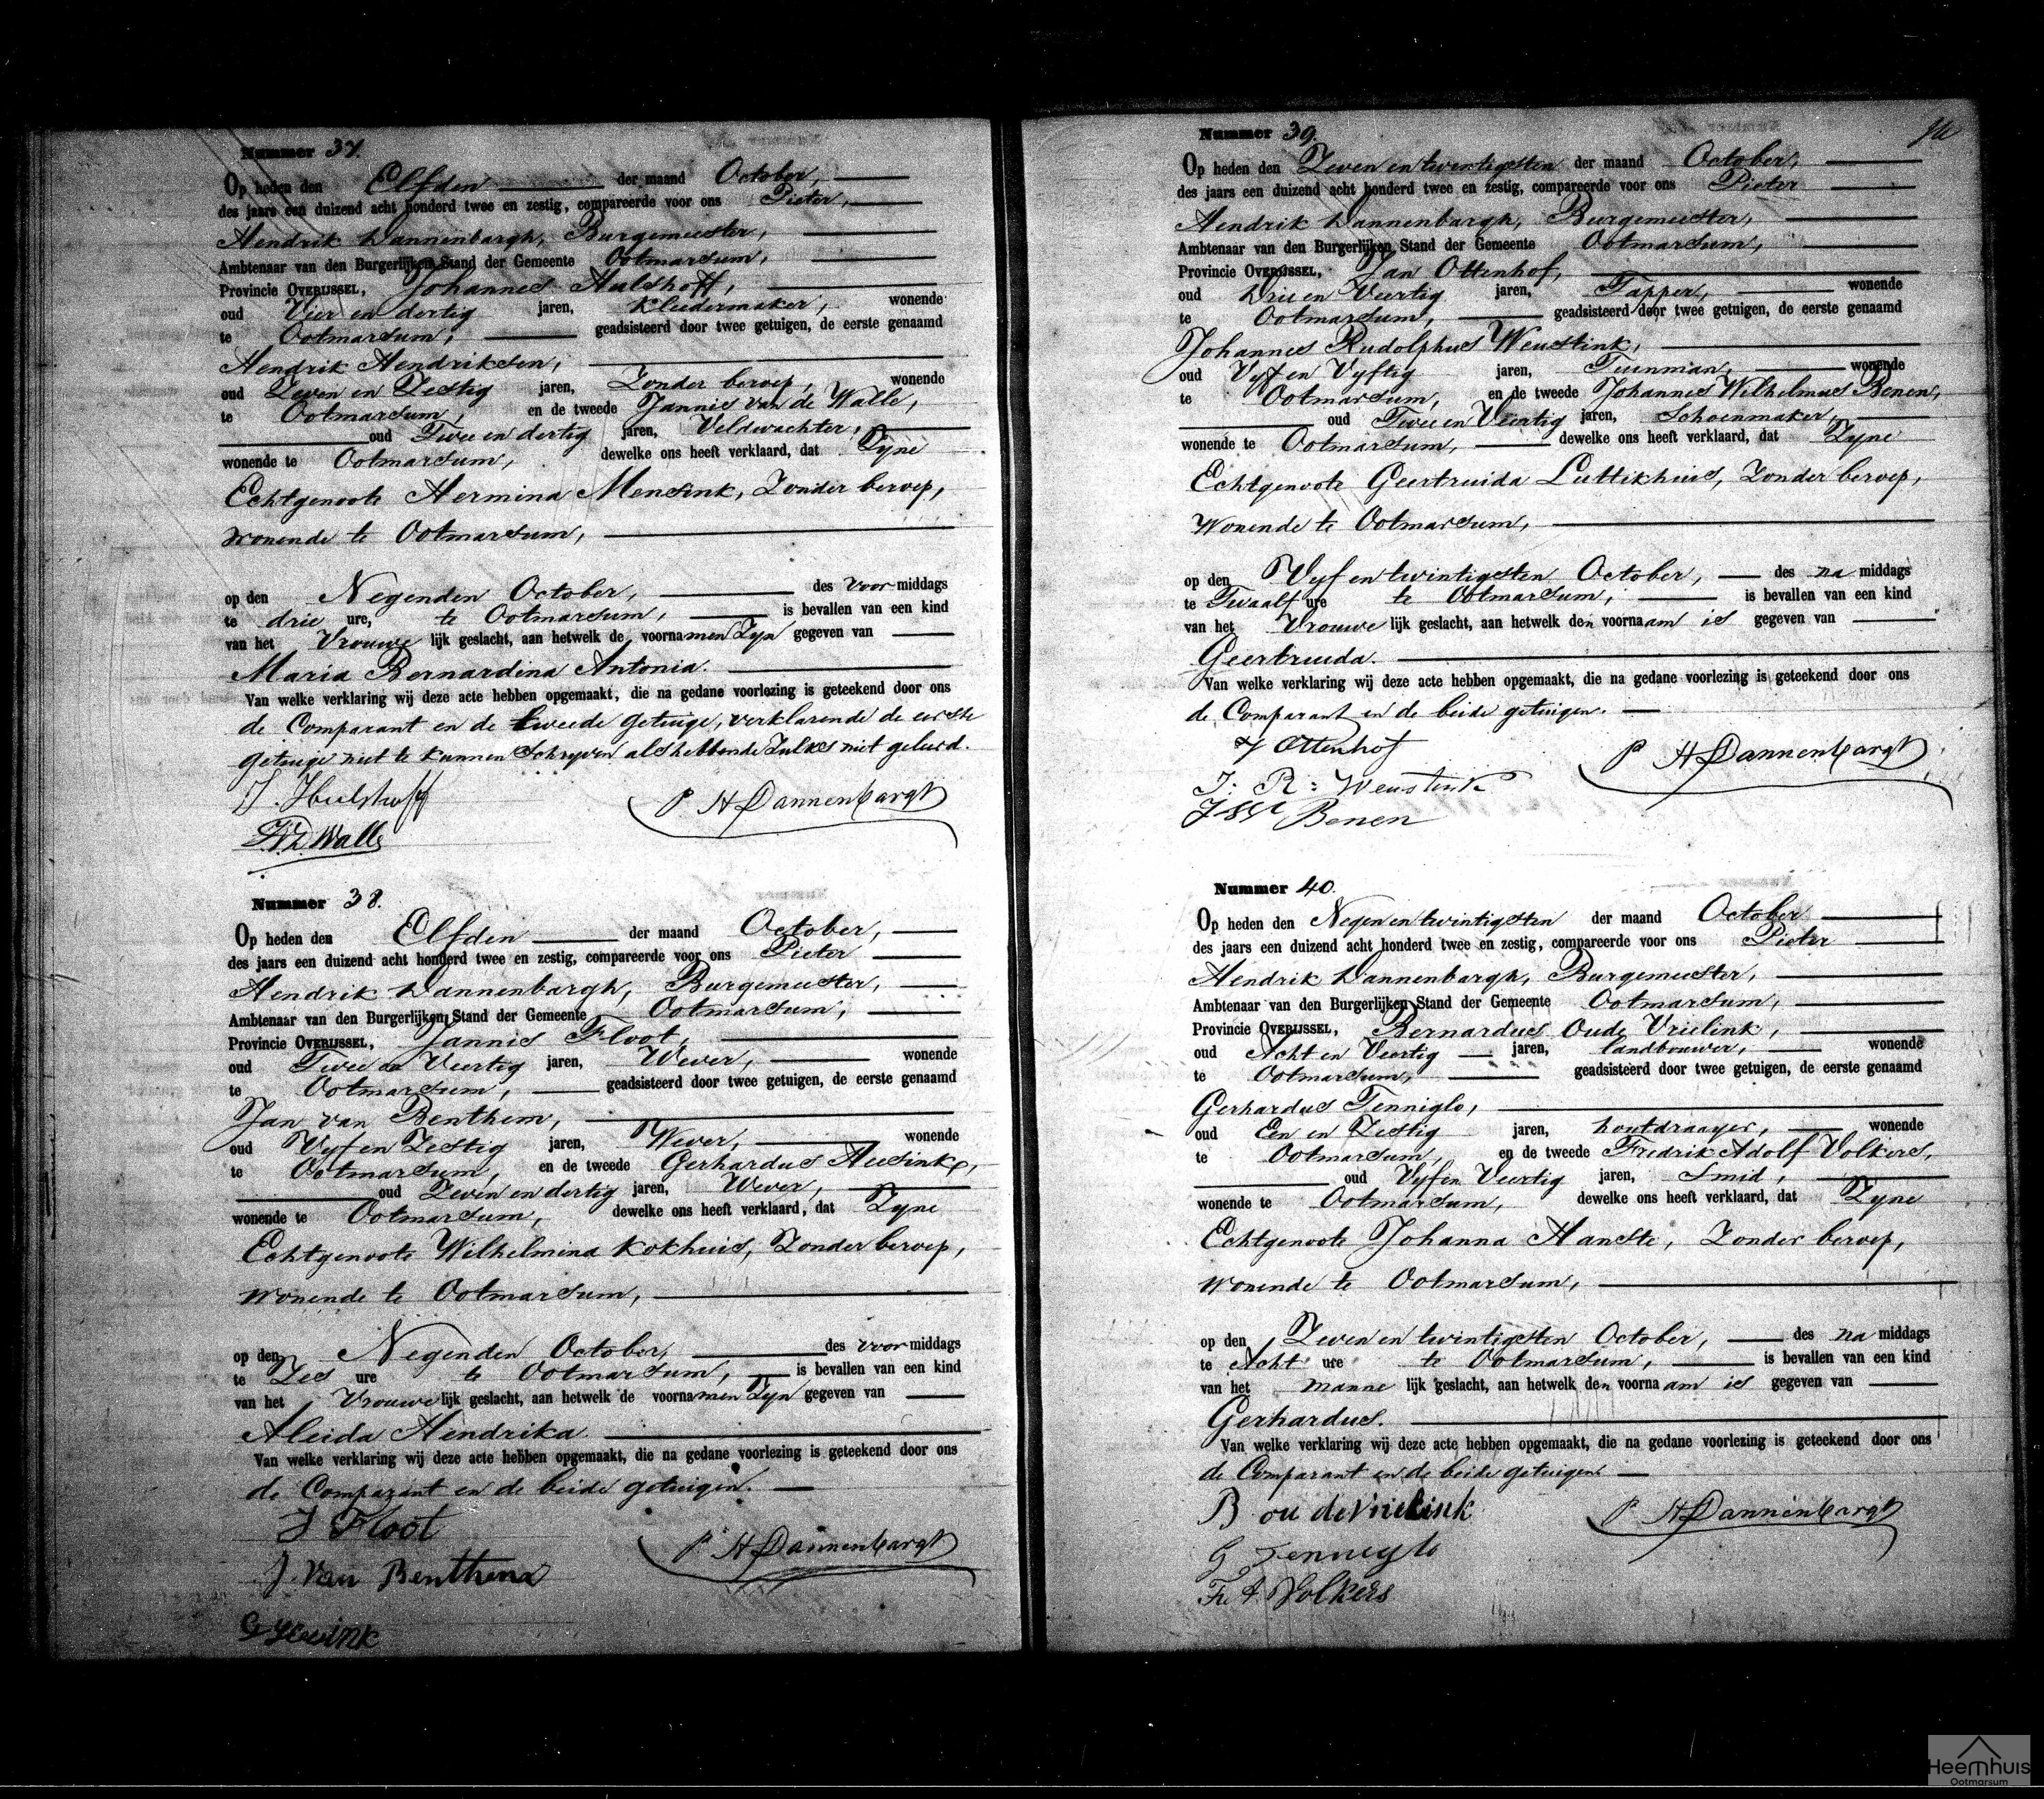 Nummer 37.
Op heden den Elfden der maand October,
des jaars een duizend acht honderd twee en zestig, compareerde voor ons Pieter,
Hendrik Dannenbargh, Burgemeester,
Ambtenaar van den Burgerlijken Stand der Gemeente Ootmarsum,
Provincie OVERIJSSEL, Johannes Hulshoff,
oud Vier en dertig jaren, Kleedermaker, wonende
te Ootmarsum, geadsisteerd door twee getuigen, de eerste genaamd
Hendrik Hendriksen,
oud Zeven en Zestig jaren, Zonder beroep, wonende
te Ootmarsum, en de tweede Jannis van de Walle,
oud Twee en dertig jaren, Veldwachter,
wonende te Ootmarsum, dewelke ons heeft verklaard, dat Zyne
Echtgenoote Hermina Mensink, Zonder beroep,
wonende te Ootmarsum,
op den Negenden October, des voor middags
te drie ure, te Ootmarsum, is bevallen van een kind
van het Vrouwe lijk geslacht, aan hetwelk de voornamen Zyn gegeven van
Maria Bernardina Antonia.
Van welke verklaring wij deze acte hebben opgemaakt, die na gedane voorlezing is geteekend door ons
de Comparant en de tweede getuige, verklarende de eerste
getuige niet te kunnen Schryven als hebbende Zulks niet geleerd.
J. Hulshoff
P H Dannenbargh
JVD Walle
Nummer 38.
Op heden den Elfden der maand October,
des jaars een duizend acht honderd twee en zestig, compareerde voor ons Pieter
Hendrik Dannenbargh, Burgemeester,
Ambtenaar van den Burgerlijken Stand der Gemeente Ootmarsum,
Provincie OVERIJSSEL, Jannis Floot,
oud Twee en Veertig jaren, Wever, wonende
te Ootmarsum, geadsisteerd door twee getuigen, de eerste genaamd
Jan van Benthem,
oud Vyf en Zestig jaren, Wever, wonende
te Ootmarsum, en de tweede Gerhardus Heusink,
oud Zeven en dertig jaren, Wever,
wonende te Ootmarsum, dewelke ons heeft verklaard, dat Zyne
Echtgenoote Wilhelmina Kokhuis, Zonder beroep,
wonende te Ootmarsum,
op den Negenden October, des voor middags
te Zes ure te Ootmarsum, is bevallen van een kind
van het Vrouwe lijk geslacht, aan hetwelk de voornamen Zyn gegeven van
Aleida Hendrika.
Van welke verklaring wij deze acte hebben opgemaakt, die na gedane voorlezing is geteekend door ons
de Comparant en de beide getuigen.
J Floot
P H Dannenbargh
J. van Benthem
Nummer 39.
Op heden den Zeven en twintigsten der maand October,
des jaars een duizend acht honderd twee en zestig, compareerde voor ons Pieter
Hendrik Dannenbargh, Burgemeester,
Ambtenaar van den Burgerlijken Stand der Gemeente Ootmarsum,
Provincie OVERIJSSEL, Jan Ottenhof,
oud Drie en Veertig jaren, Tapper, wonende
te Ootmarsum, geadsisteerd door twee getuigen, de eerste genaamd
Johannes Rudolphus Weustink,
oud Vyf en Vyftig jaren, Tuinman, wonende
te Ootmarsum, en de tweede Johannes Wilhelmus Benen,
oud Twee en Veertig jaren, Schoenmaker,
wonende te Ootmarsum, dewelke ons heeft verklaard, dat Zyne
Echtgenoote Geertruida Luttikhuis, Zonder beroep,
wonende te Ootmarsum,
op den Vyf en twintigsten October, des na middags
te Twaalf ure te Ootmarsum, is bevallen van een kind
van het Vrouwe lijk geslacht, aan hetwelk den voornaam is gegeven van
Geertruida.
Van welke verklaring wij deze acte hebben opgemaakt, die na gedane voorlezing is geteekend door ons
de Comparant en de beide getuigen.
J Ottenhof
P H Dannenbargh
J: R: Weustink
J W Benen
Nummer 40.
Op heden den Negen en twintigsten der maand October
des jaars een duizend acht honderd twee en zestig, compareerde voor ons Pieter
Hendrik Dannenbargh, Burgemeester,
Ambtenaar van den Burgerlijken Stand der Gemeente Ootmarsum,
Provincie OVERIJSSEL, Bernardus Oude Vrielink,
oud Acht en Veertig jaren, landbouwer, wonende
te Ootmarsum, geadsisteerd door twee getuigen, de eerste genaamd
Gerhardus Tenniglo,
oud Een en Zestig jaren, houtdraayer, wonende
te Ootmarsum, en de tweede Fredrik Adolf Volkers,
oud Vyf en Veertig jaren, Smid,
wonende te Ootmarsum, dewelke ons heeft verklaard, dat Zyne
Echtgenoote Johanna Hanste, Zonder beroep,
wonende te Ootmarsum,
op den Zeven en twintigsten October, des na middags
te Acht ure te Ootmarsum, is bevallen van een kind
van het manne lijk geslacht, aan hetwelk den voornaam is gegeven van
Gerhardus.
Van welke verklaring wij deze acte hebben opgemaakt, die na gedane voorlezing is geteekend door ons
de Comparant en de beide getuigen.
B oudevrielink
P H Dannenbargh
G Tenniglo
Fr A Volkers
Heemhuis
Ootmarsum